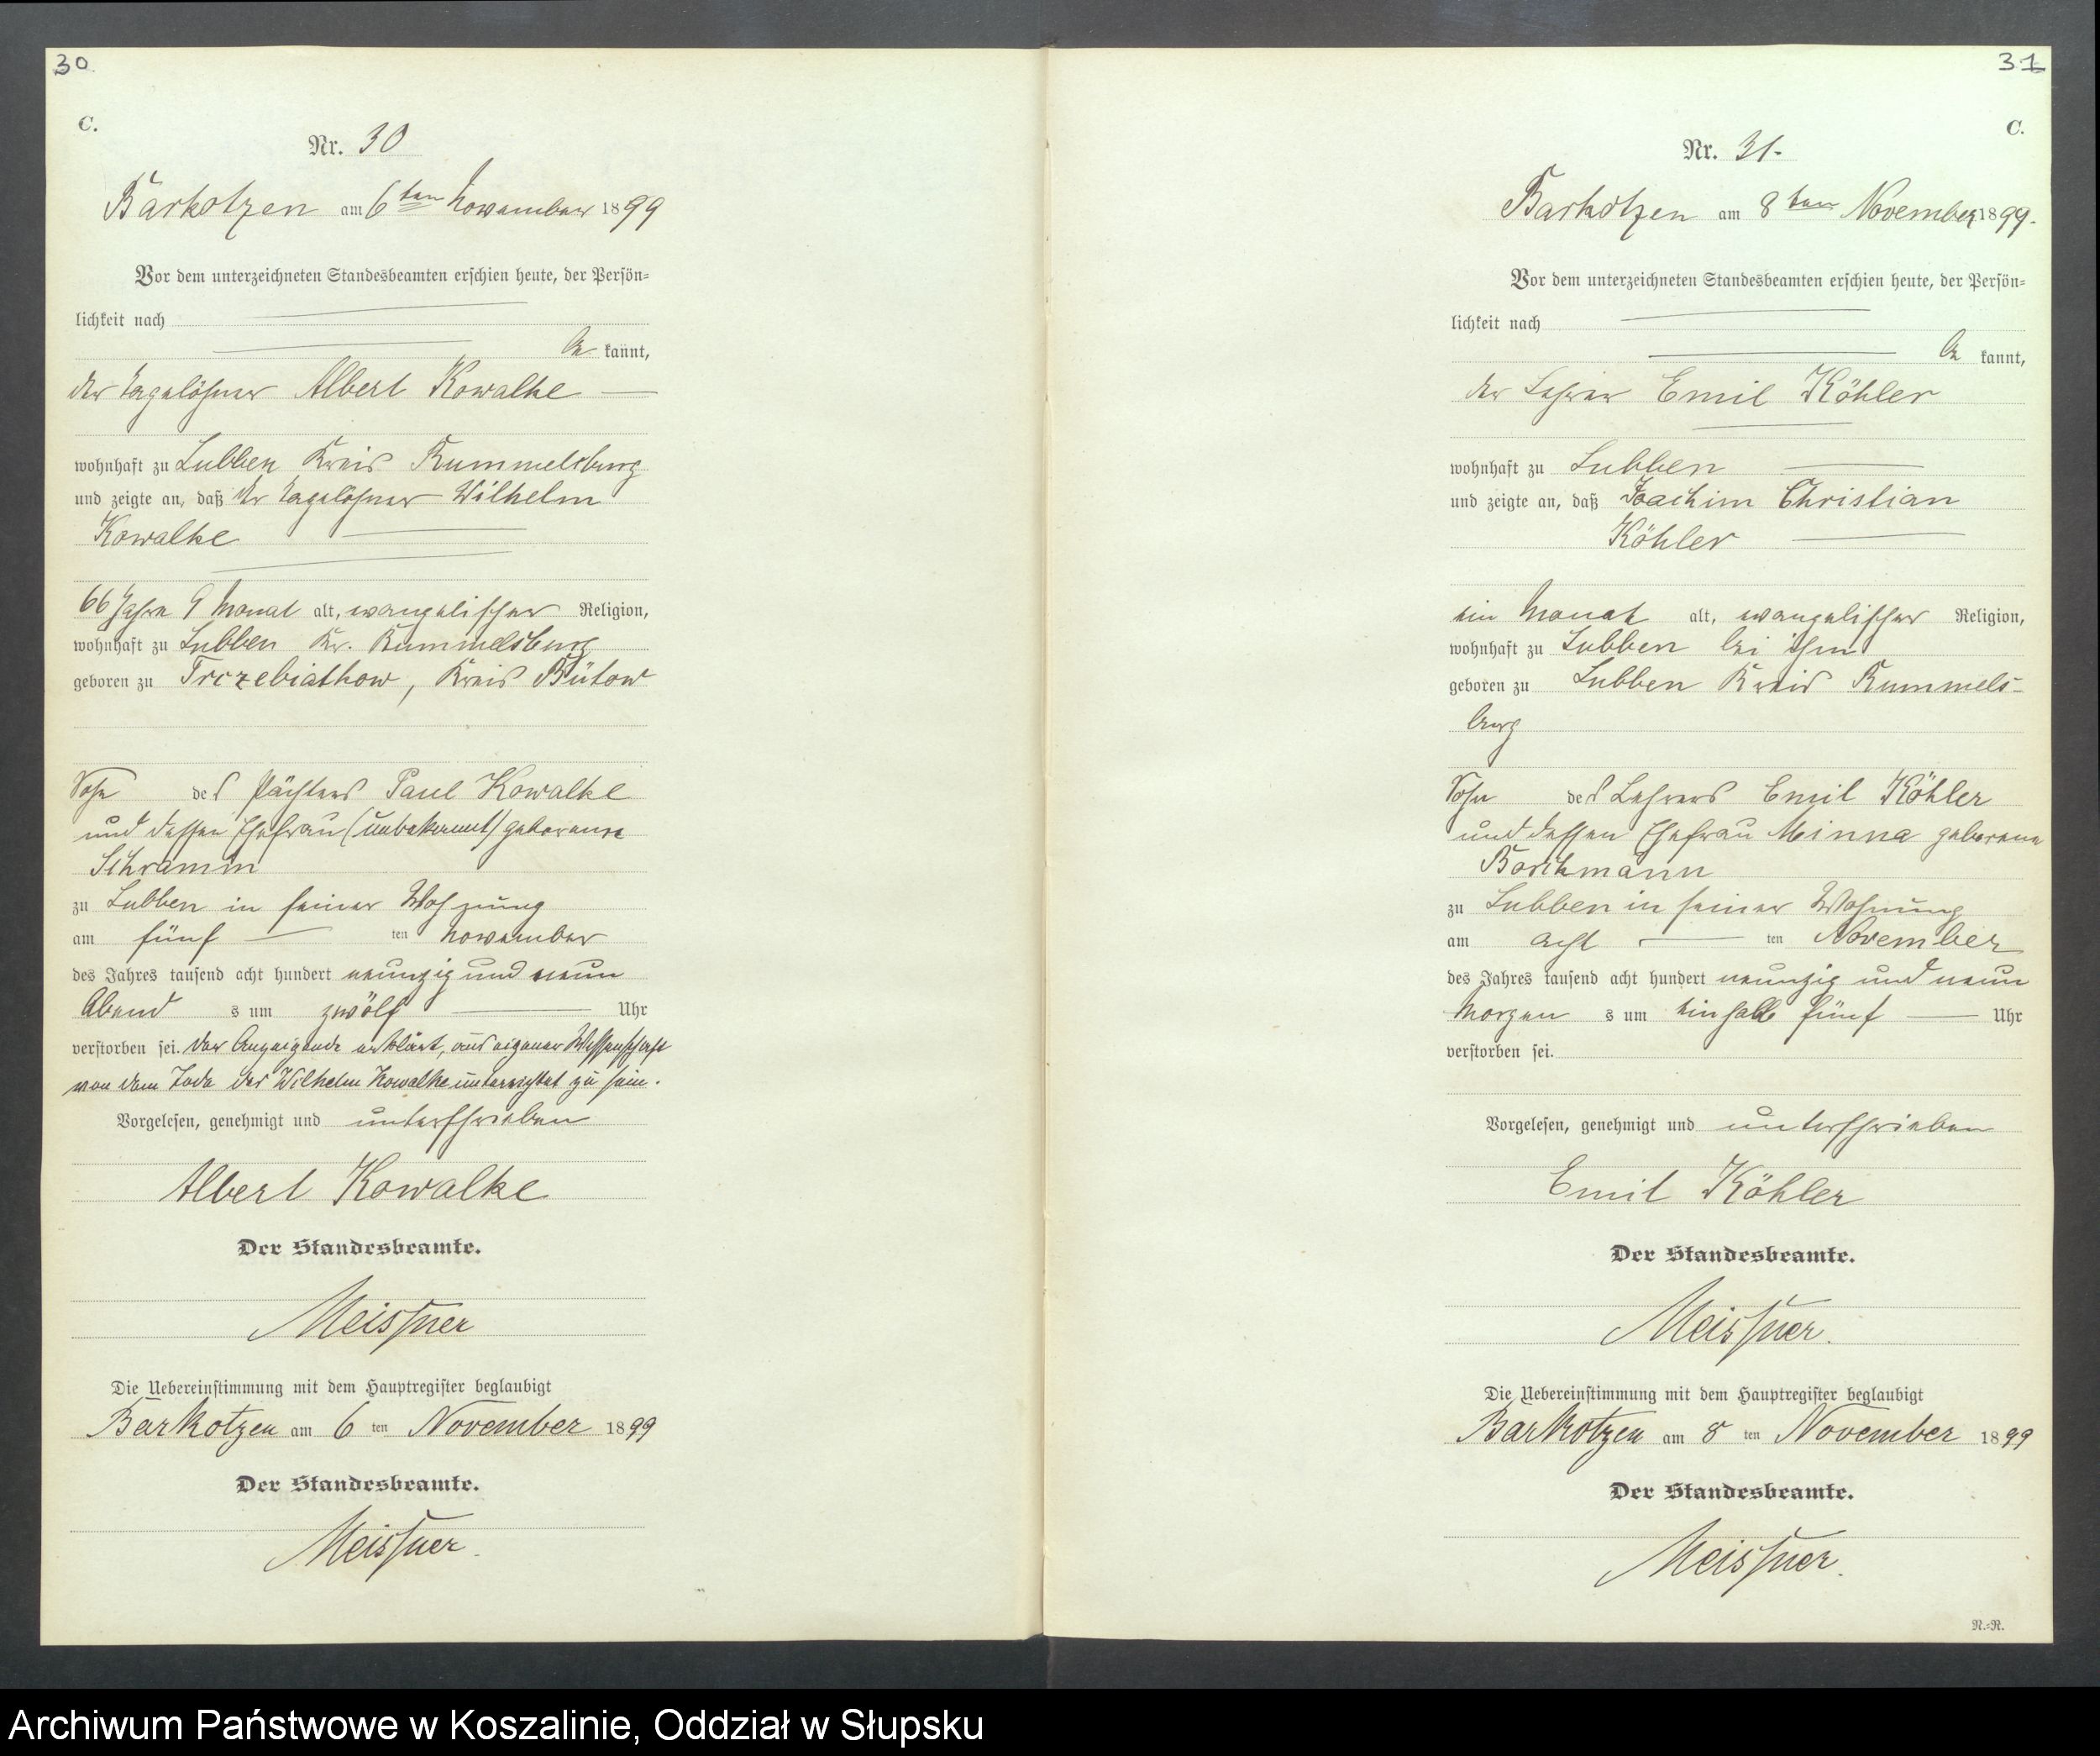 30
C.
Nr. 30
Barkotzen am 6ten November 1899
Vor dem unterzeichneten Standesbeamten erschien heute, der Persön-
lichkeit nach
be kannt,
der Tagelöhner Albert Kowalke
wohnhaft zu Lubben Kreis Rummelsburg
und zeigte an, daß der Tagelöhner Wilhelm
Kowalke
66 Jahre 9 Monat alt, evangelischer Religion,
wohnhaft zu Lubben Kr. Rummelsburg
geboren zu Trczebiatkow, Kreis Bütow
Sohn des Pächters Paul Kowalke
und dessen Ehefrau (unbekannt) geborene
Schramm
zu Lubben in seiner Wohnung
am fünf ten November
des Jahres tausend acht hundert neunzig und neun
Abend s um zwölf Uhr
verstorben sei. Der Anzeigende erklärt, aus eigener Wissenschaft
von dem Tode des Wilhelm Kowalke unterrichtet zu sein.
Vorgelesen, genehmigt und unterschrieben
Albert Kowalke
Der Standesbeamte.
Meissner
Die Uebereinstimmung mit dem Hauptregister beglaubigt
Barkotzen am 6 ten November 1899
Der Standesbeamte.
Meissner.
31
C.
Nr. 31.
Barkotzen am 8ten November 1899.
Vor dem unterzeichneten Standesbeamten erschien heute, der Persön-
lichkeit nach
be kannt,
der Lehrer Emil Köhler
wohnhaft zu Lubben
und zeigte an, daß Joachim Christian
Köhler
ein Monat alt, evangelischer Religion,
wohnhaft zu Lubben bei ihm
geboren zu Lubben Kreis Rummels-
burg
Sohn des Lehrers Emil Köhler
und dessen Ehefrau Minna geborene
Borchmann
zu Lubben in seiner Wohnung
am acht ten November
des Jahres tausend acht hundert neunzig und neun
Morgen s um einhalb fünf Uhr
verstorben sei.
Vorgelesen, genehmigt und unterschrieben
Emil Köhler
Der Standesbeamte.
Meissner.
Die Uebereinstimmung mit dem Hauptregister beglaubigt
Barkotzen am 8 ten November 1899
Der Standesbeamte.
Meissner.
N.=R.
Archiwum Państwowe w Koszalinie, Oddział w Słupsku